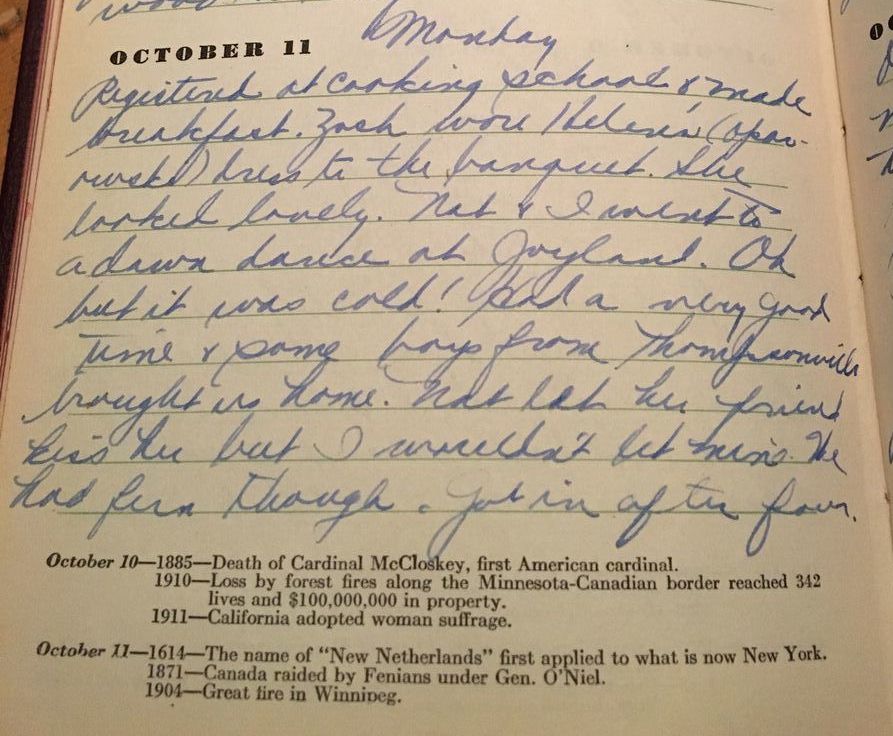 Monday
OCTOBER 11
Registered at cooking school & made
breakfast. Zosh wore Helena (Opa-
rowski) dress to the banquet. She
looked lovely. Nat & I went to
a dawn dance at Joyland. Oh
but it was cold! Had a very good
time & some boys from Thompsonville
brought us home. Nat let her friend
kiss her but I wouldn't let mine. We
had fun though. Got in after four.
October 10—1885—Death of Cardinal McCloskey, first American cardinal.
1910—Loss by forest fires along the Minnesota-Canadian border reached 342
lives and $100,000,000 in property.
1911—California adopted woman suffrage.
October 11—1614—The name of "New Netherlands" first applied to what is now New York.
1871—Canada raided by Fenians under Gen. O'Niel.
1904—Great fire in Winnipeg.